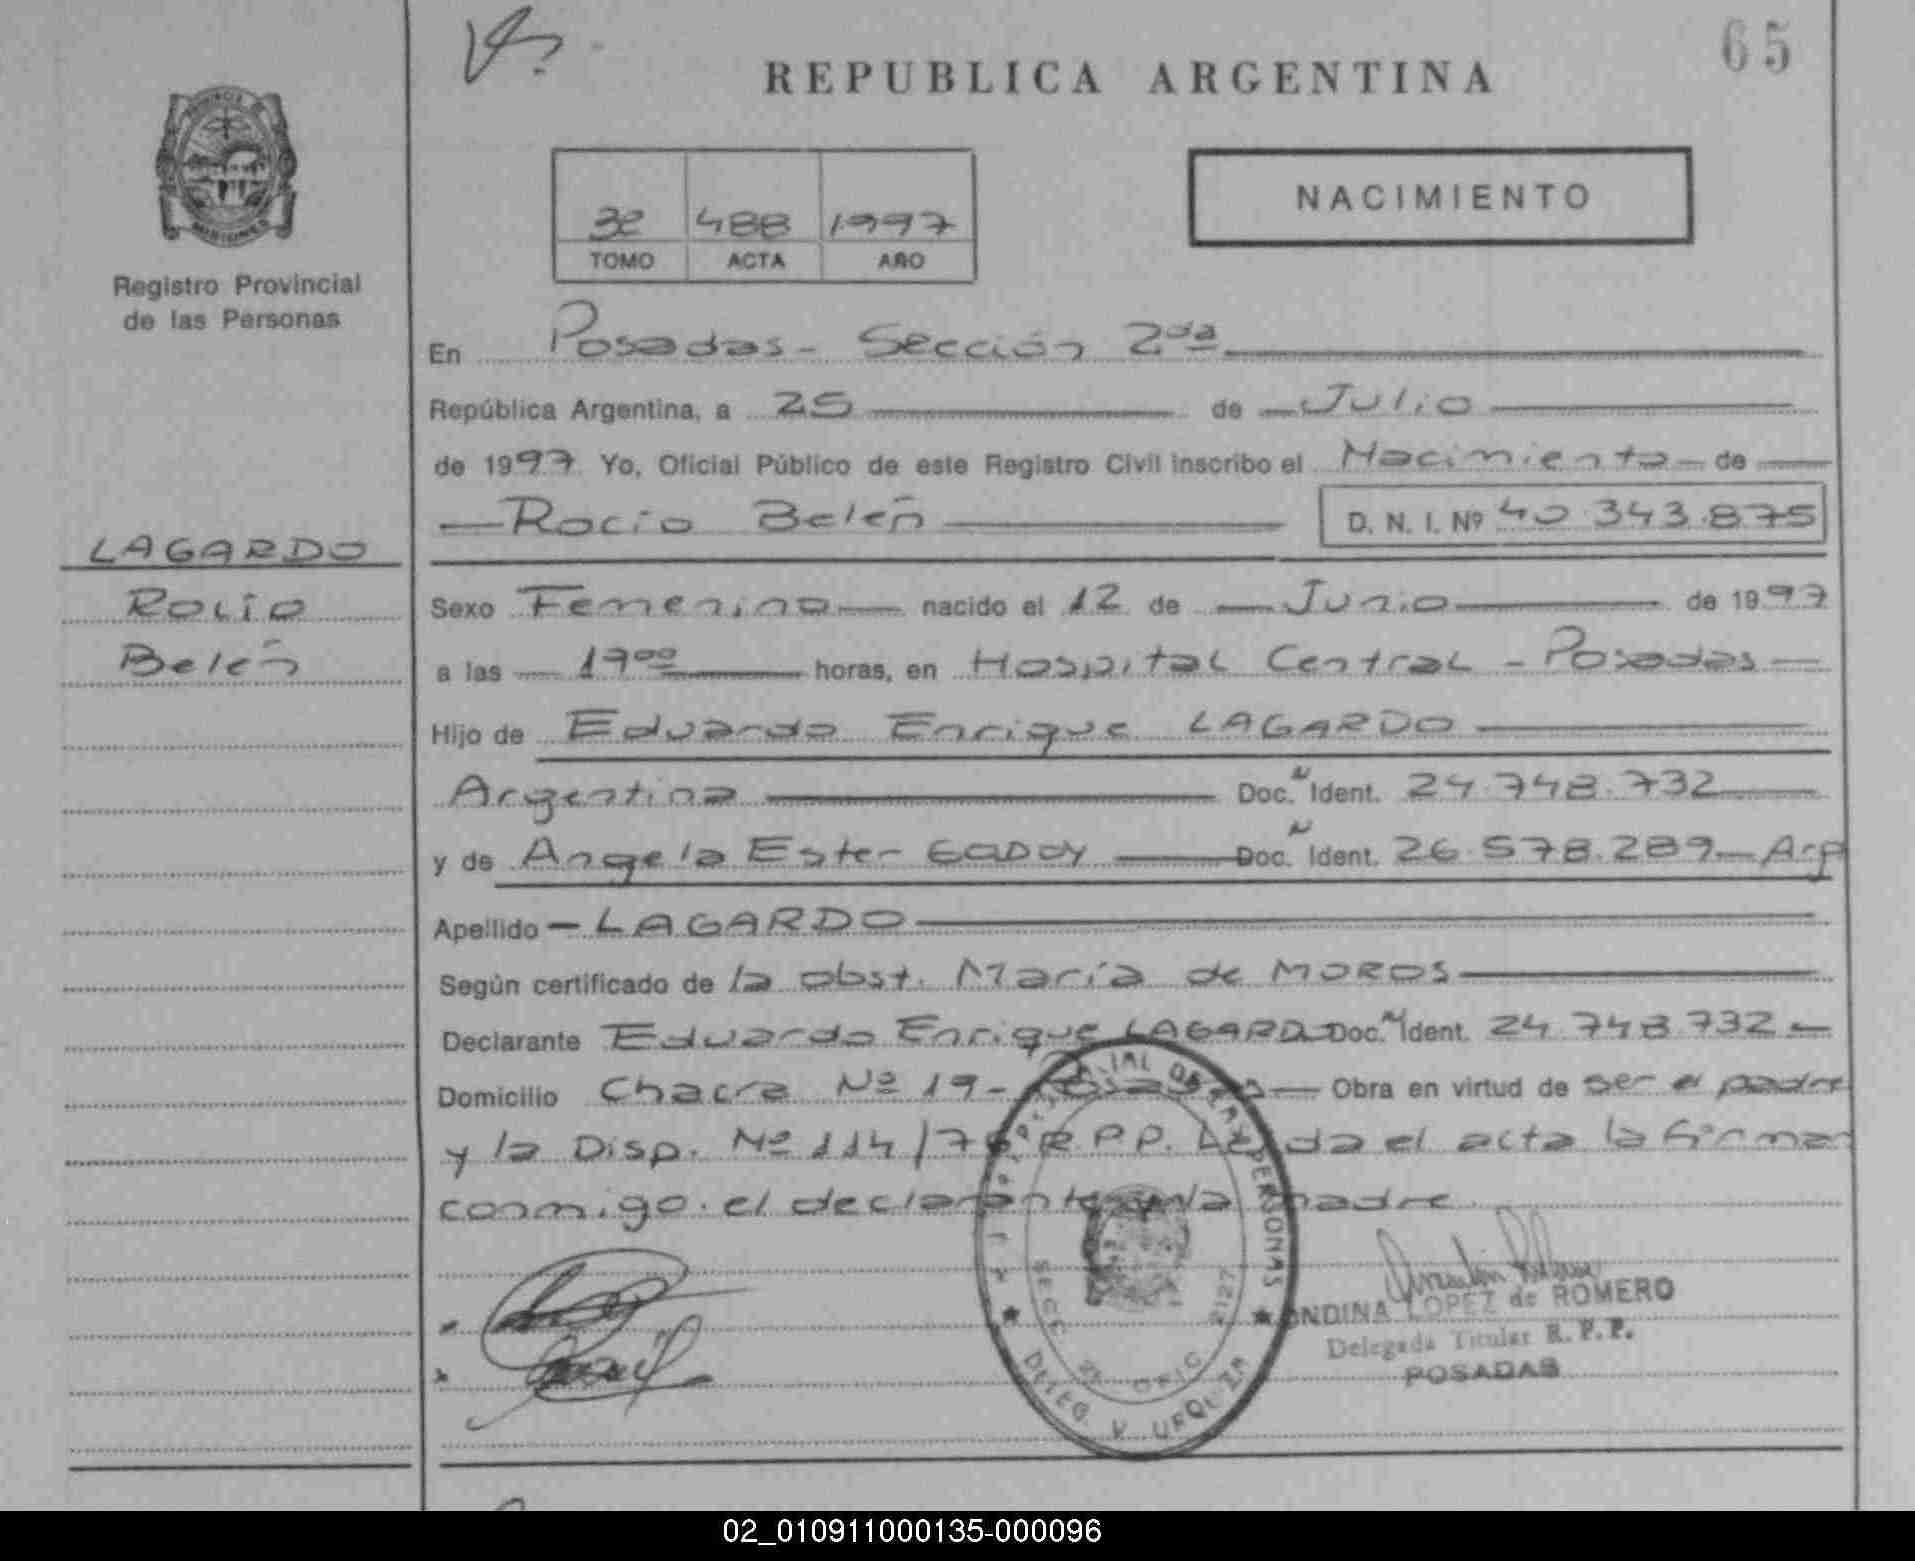 65
REPUBLICA ARGENTINA
PROVINCIA DE
MISIONES
Registro Provincial
de las Personas
NACIMIENTO
3º 488 1997
TOMO ACTA AÑO
En Posadas - Sección 2da
República Argentina, a 25 de Julio
de 1997 Yo, Oficial Público de este Registro Civil inscribo el Nacimiento de
Rocío Belén D. N. I. Nº 40.343.875
LAGARDO
Rocío
Belén
Sexo Femenino nacido el 12 de Junio de 1997
a las 17ºº horas, en Hospital Central - Posadas
Hijo de Eduardo Enrique LAGARDO
Argentina Doc. N Ident. 24.748.732
y de Angela Ester GODOY Doc. N Ident. 26.578.289 - Arg
Apellido - LAGARDO
Según certificado de la obst. María de MOROS
Declarante Eduardo Enrique LAGARDO Doc. N Ident. 24.748.732 -
Domicilio Chacra Nº 19 - Posadas - Obra en virtud de ser el padre
y la Disp. Nº 114/76 R.P.P. Leída el acta la firman
conmigo el declarante y la madre
DE LAS PERSONAS
SECC 2a OFIC 2127
DELEG. V. URQUIZA
ONDINA LOPEZ de ROMERO
Delegada Titular R. P. P.
POSADAS
02_010911000135-000096